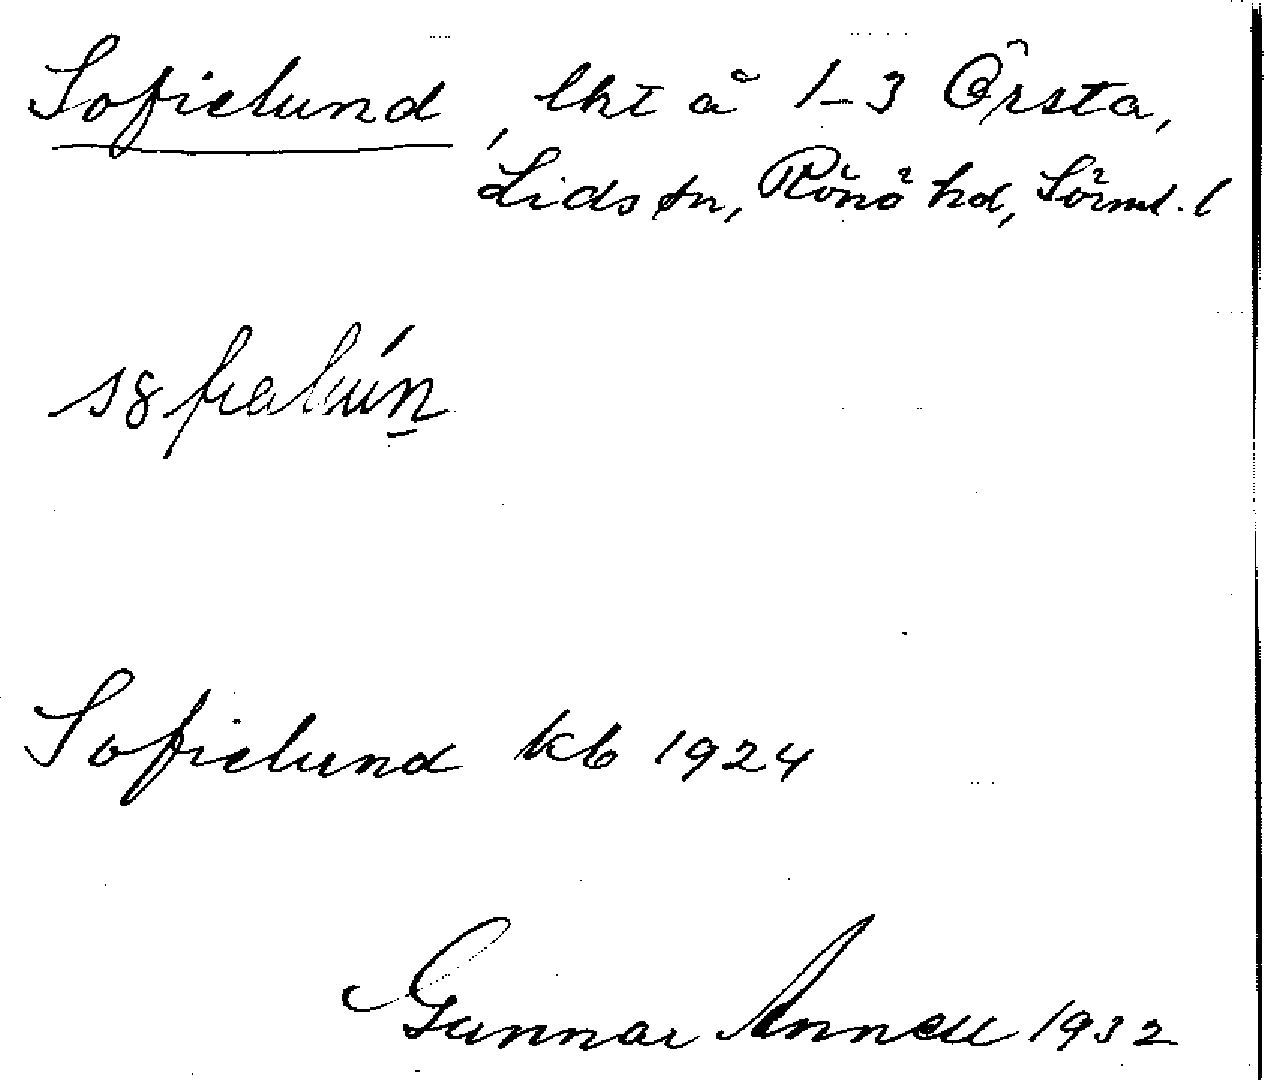 Sofielund, lht å 1-3 Örsta,
Lids sn, Rönö hd, Sörml. l
Sofielund kb 1924
Gunnar Annell 1932